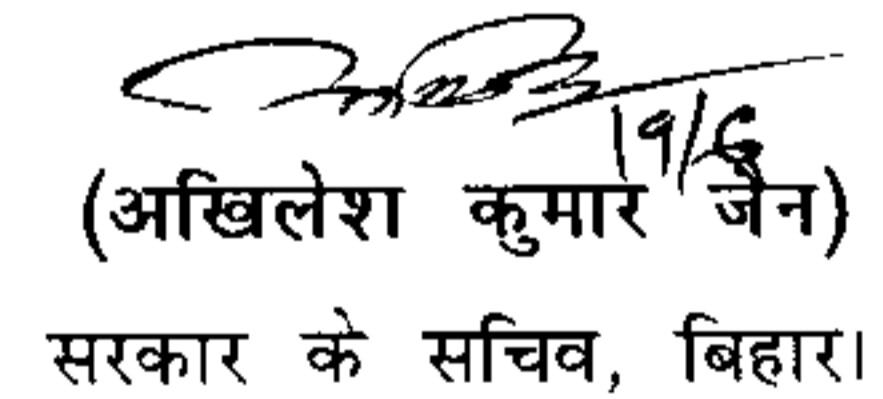 19/6
(अखिलेश कुमार जैन)
सरकार के सचिव, बिहार।